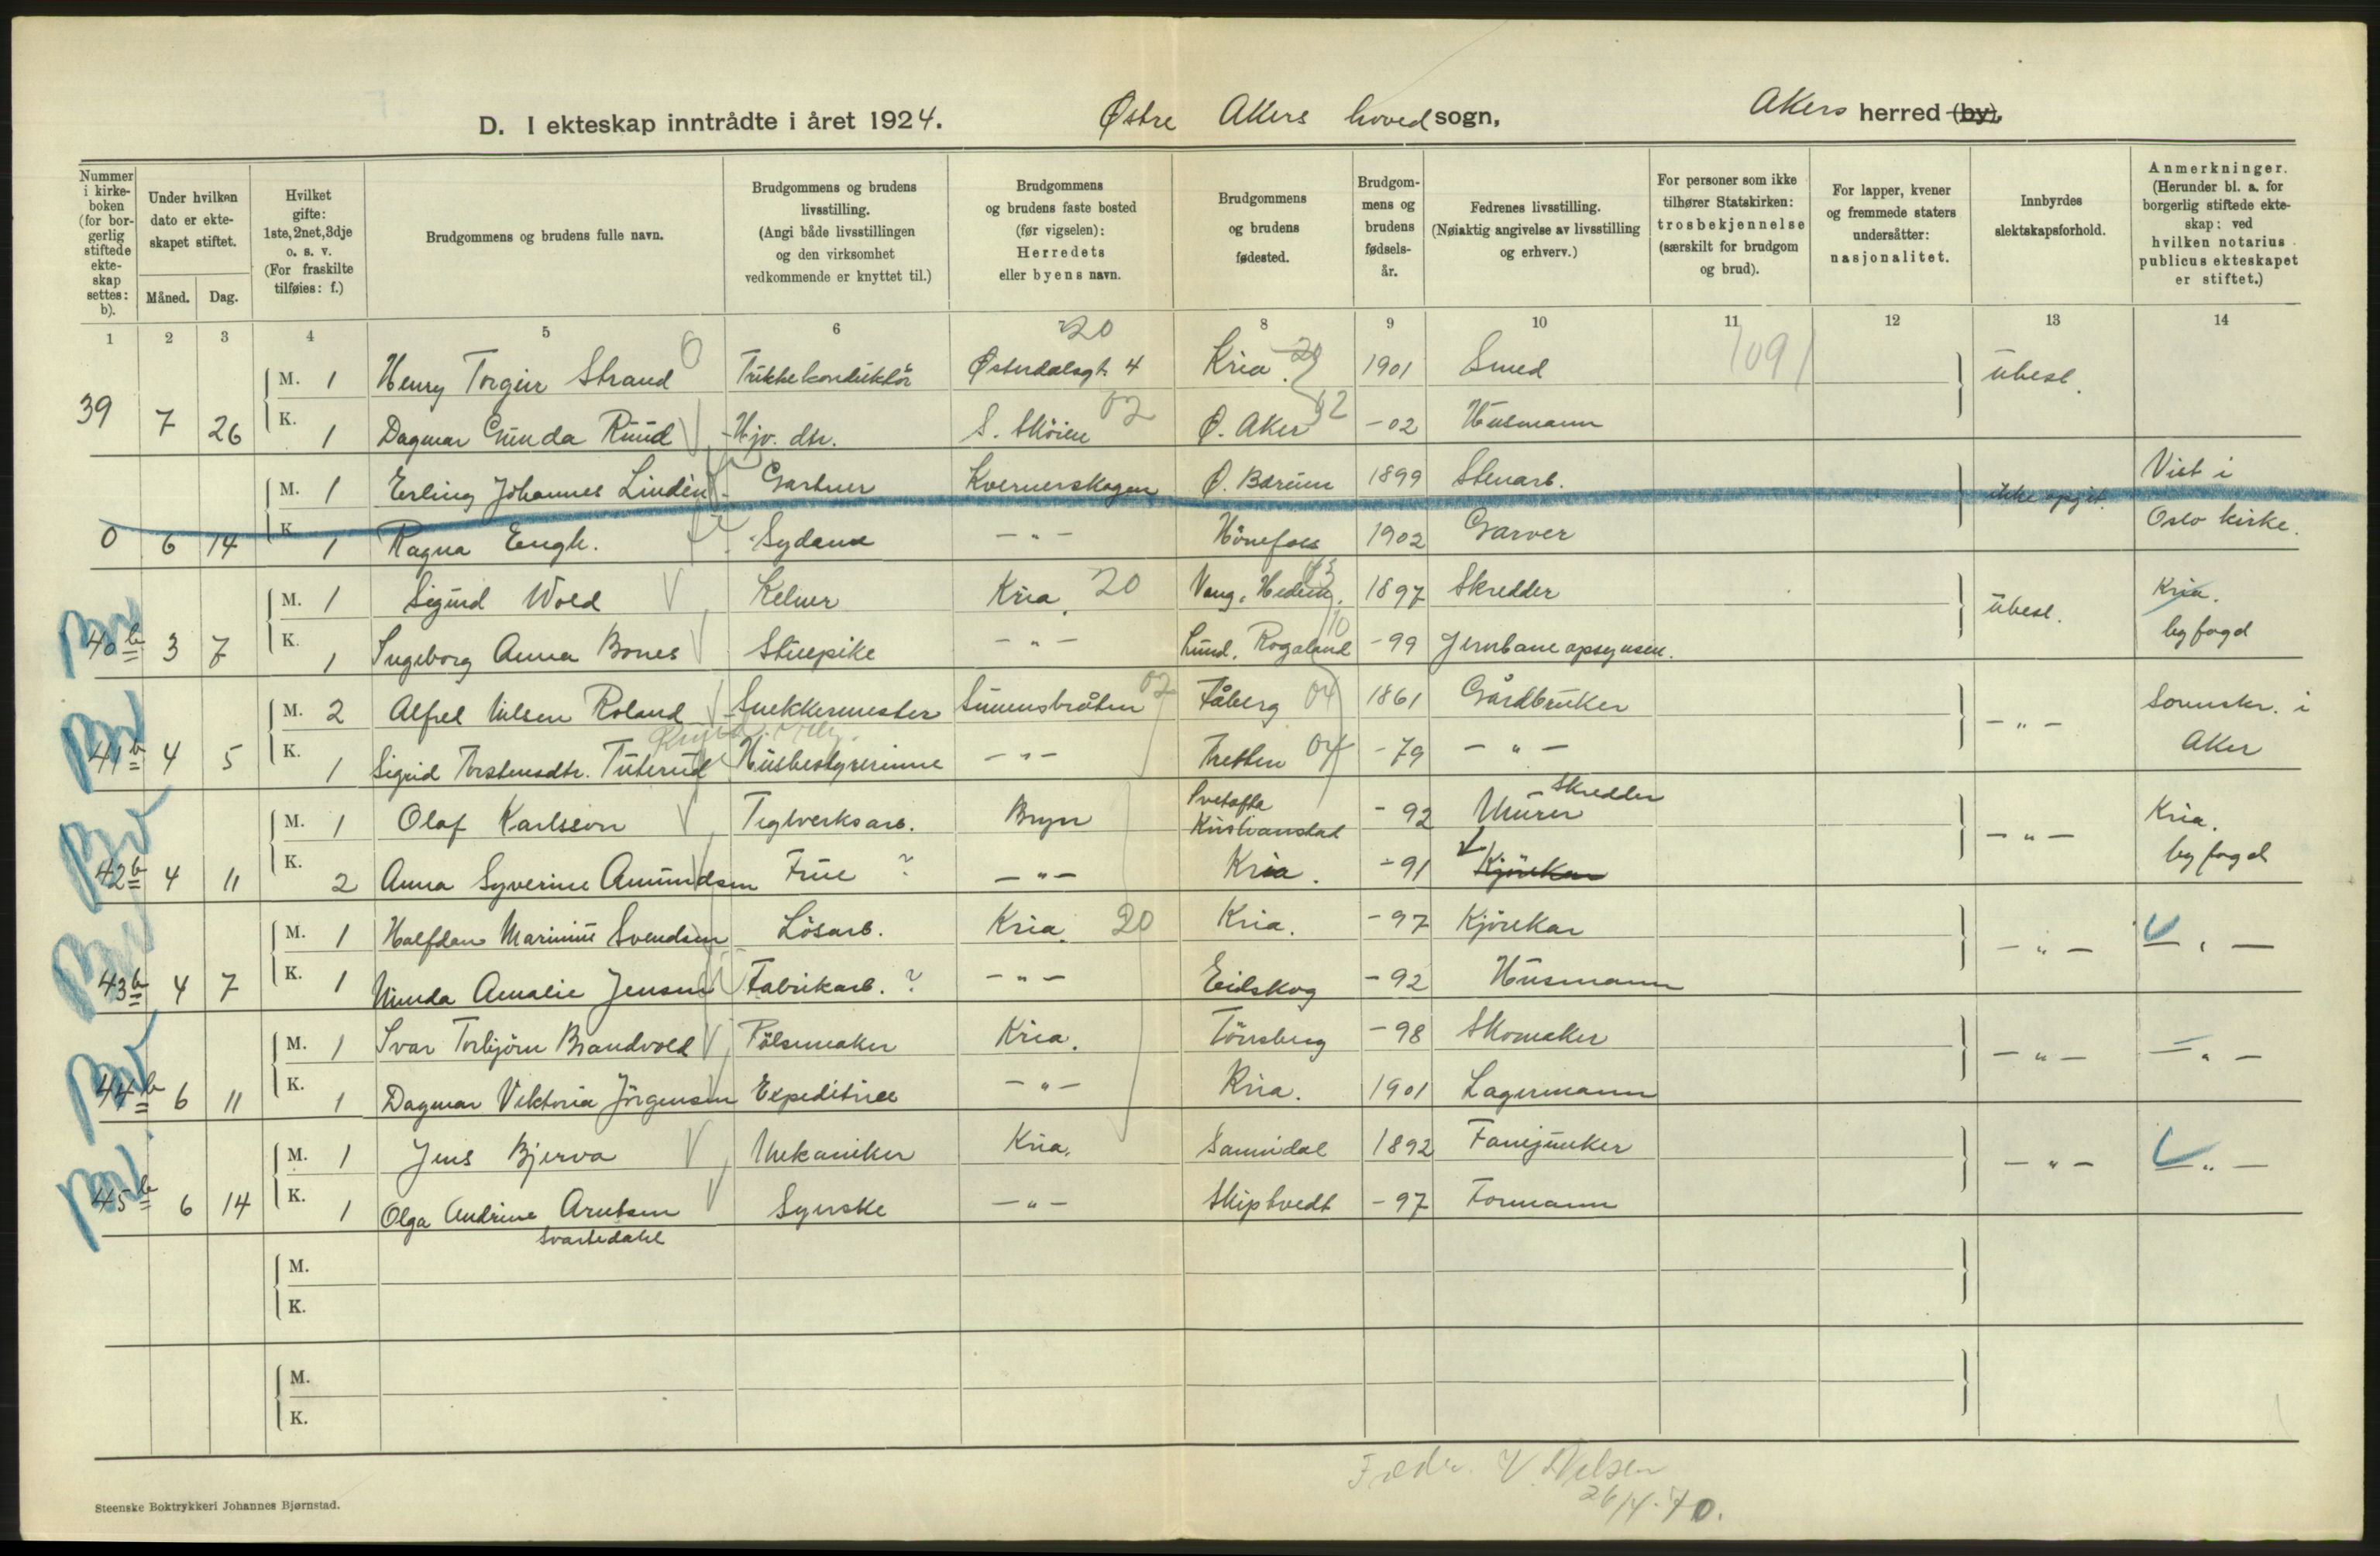 D. I ekteskap inntrådte i året 1924. Østre Akers hovedsogn, Akers herred (by),
Nummer i kirke-boken (for bor-gerlig stiftede ekte-skap settes: b).
Under hvilken dato er ekte-skapet stiftet.
Måned. Dag.
Hvilket gifte: 1ste, 2net, 3dje o. s. v. (For fraskilte tilføies: f.)
Brudgommens og brudens fulle navn.
Brudgommens og brudens livsstilling. (Angi både livsstillingen og den virksomhet vedkommende er knyttet til.)
Brudgommens og brudens faste bosted (før vigselen): Herredets eller byens navn.
Brudgommens og brudens fødested.
Brudgom-mens og brudens fødsels-år.
Fedrenes livsstilling. (Nøiaktig angivelse av livsstilling og erhverv.)
For personer som ikke tilhører Statskirken: trosbekjennelse (særskilt for brudgom og brud).
For lapper, kvener og fremmede staters undersåtter: nasjonalitet.
Innbyrdes slektskapsforhold.
Anmerkninger. (Herunder bl. a. for borgerlig stiftede ekte-skap: ved hvilken notarius publicus ekteskapet er stiftet.)
1 2 3 4 5 6 8 9 10 11 12 13 14
20
M. 1 Henry Torgeir Strand Trikkekonduktör Østerdalsgt. 4 Kria. 20 1901 Smed 109 ubesl.
39 7 26 K. 1 Dagmar Gunda Ruud Hjv. dtr. S. Sköien 02 Ø. Aker 02 -02 Husmann
M. 1 Erling Johannes Linden Gartner Kvernerskogen Ø. Bærum 1899 Stenarb. ikke opgit. Viet i
0 6 14 K. 1 Ragna Engh. Sydame - " - Hönefoss 1902 Garver Oslo kirke.
M. 1 Sigurd Wold Kelner Kria. 20 Vang, Hedem. 03 1897 Skredder ubesl. Kria.
40b 3 7 K. 1 Ingeborg Anna Bones Stuepike - " - Lund, Rogaland 10 -99 Jernbaneopsynsm. byfogd
M. 2 Alfred Nilsen Roland Snekkermester Simensbråten 02 Fåberg 04 1861 Gårdbruker - " - Sorenskr. i
41b 4 5 K. 1 Sigrid Torstensdtr. Tuterud Husbestyrerinne - " - Tretten 04 -79 - " - Aker
M. 1 Olaf Karlsson Teglverksarb. Bryn Kristianstad -92 Murer Skredder - " - Kria.
42b 4 11 K. 2 Anna Syverine Amundsen Frue ? - " - Kria. -91 Kjörekar byfogd
M. 1 Halfdan Marinius Svendsen Lösarb. Kria. 20 Kria. -97 Kjörekar - " - - " -
43b 4 7 K. 1 Minda Amalie Jensen Fabrikarb. ? - " - Eidskog -92 Husmann
M. 1 Ivar Torbjörn Brandvold Pölsemaker Kria. Tönsberg -98 Skomaker - " - - " -
44b 6 11 K. 1 Dagmar Viktoria Jörgensen Expeditrice - " - Kria. 1901 Lagermann
M. 1 Jens Bjerva Mekaniker Kria. Sannidal 1892 Fanejunker - " - - " -
45b 6 14 K. 1 Olga Andrine Arntsen Syerske - " - Skiptvedt -97 Formann
Svartedahl
M.
K.
M.
K.
V. Nelsen
26/4-70.
Steenske Boktrykkeri Johannes Bjørnstad.